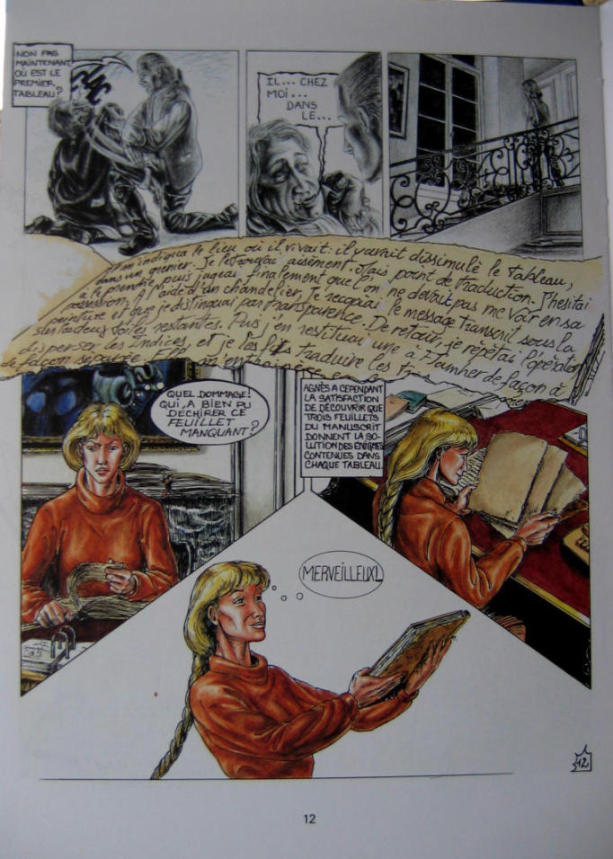 NON PAS
MAINTENANT,
OÙ EST LE
PREMIER
TABLEAU?
IL... CHEZ
MOI...
DANS
LE...
m'indiqua le lieu où il vivait: il y avait dissimulé le tableau,
dans un grenier. Je le forçai aisément. Mais point de traduction. J'hésitai
à le prendre puis jugeai finalement que l'on ne devait pas me voir en sa
possession. À l'aide d'un chandelier, je recopiai le message transcrit sous la
peinture et que je distinguai par transparence. De retour, je répétai l'opération
sur les deux toiles restantes. Puis j'en restituai une à de façon à
disperser les indices, et je les fis traduire les
de façon séparée.
QUEL DOMMAGE!
QUI A BIEN PU
DÉCHIRER CE
FEUILLET
MANQUANT?
AGNÈS A CEPENDANT
LA SATISFACTION
DE DÉCOUVRIR QUE
TROIS FEUILLETS
DU MANUSCRIT
DONNENT LA SO-
LUTION DES ÉNIGMES
CONTENUES DANS
CHAQUE TABLEAU.
MERVEILLEUX!
12
12